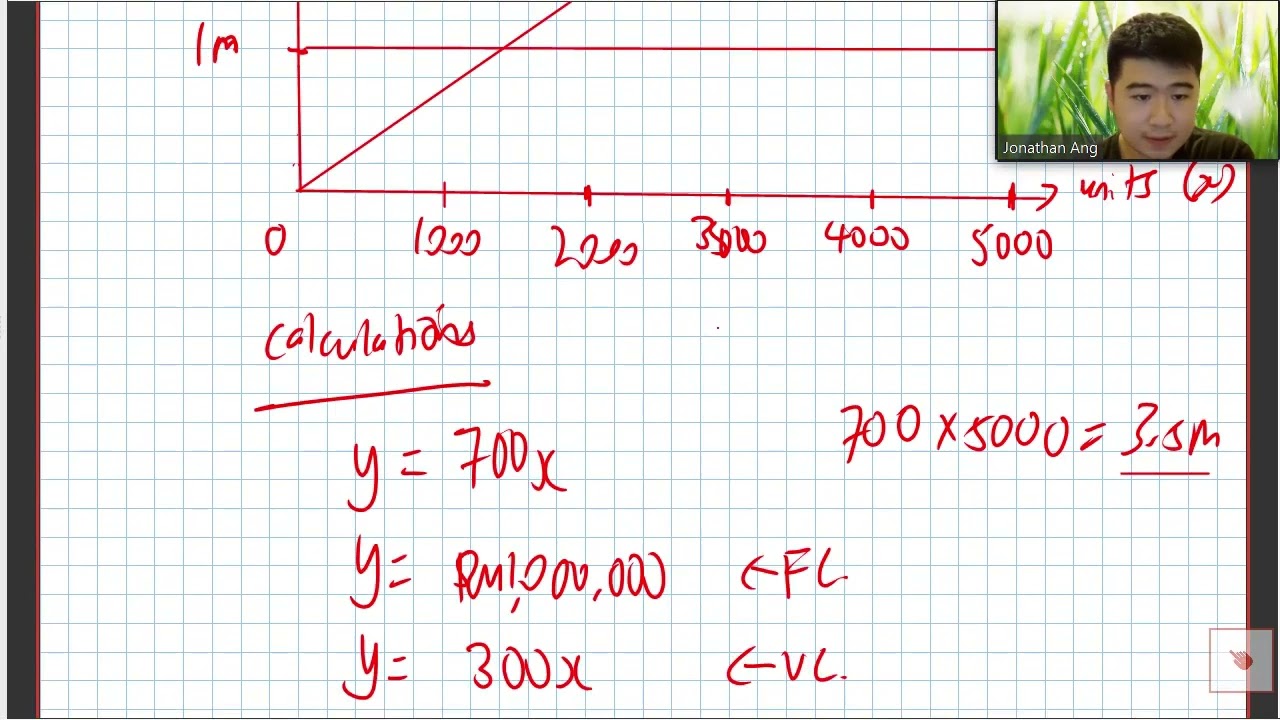 1m
Jonathan Ang
units (x)
0 1000 2000 3000 4000 5000
Calculations
y = 700x
700 × 5000 = 3.5m
y = RM1,000,000 ← FC
y = 300x ← VC.